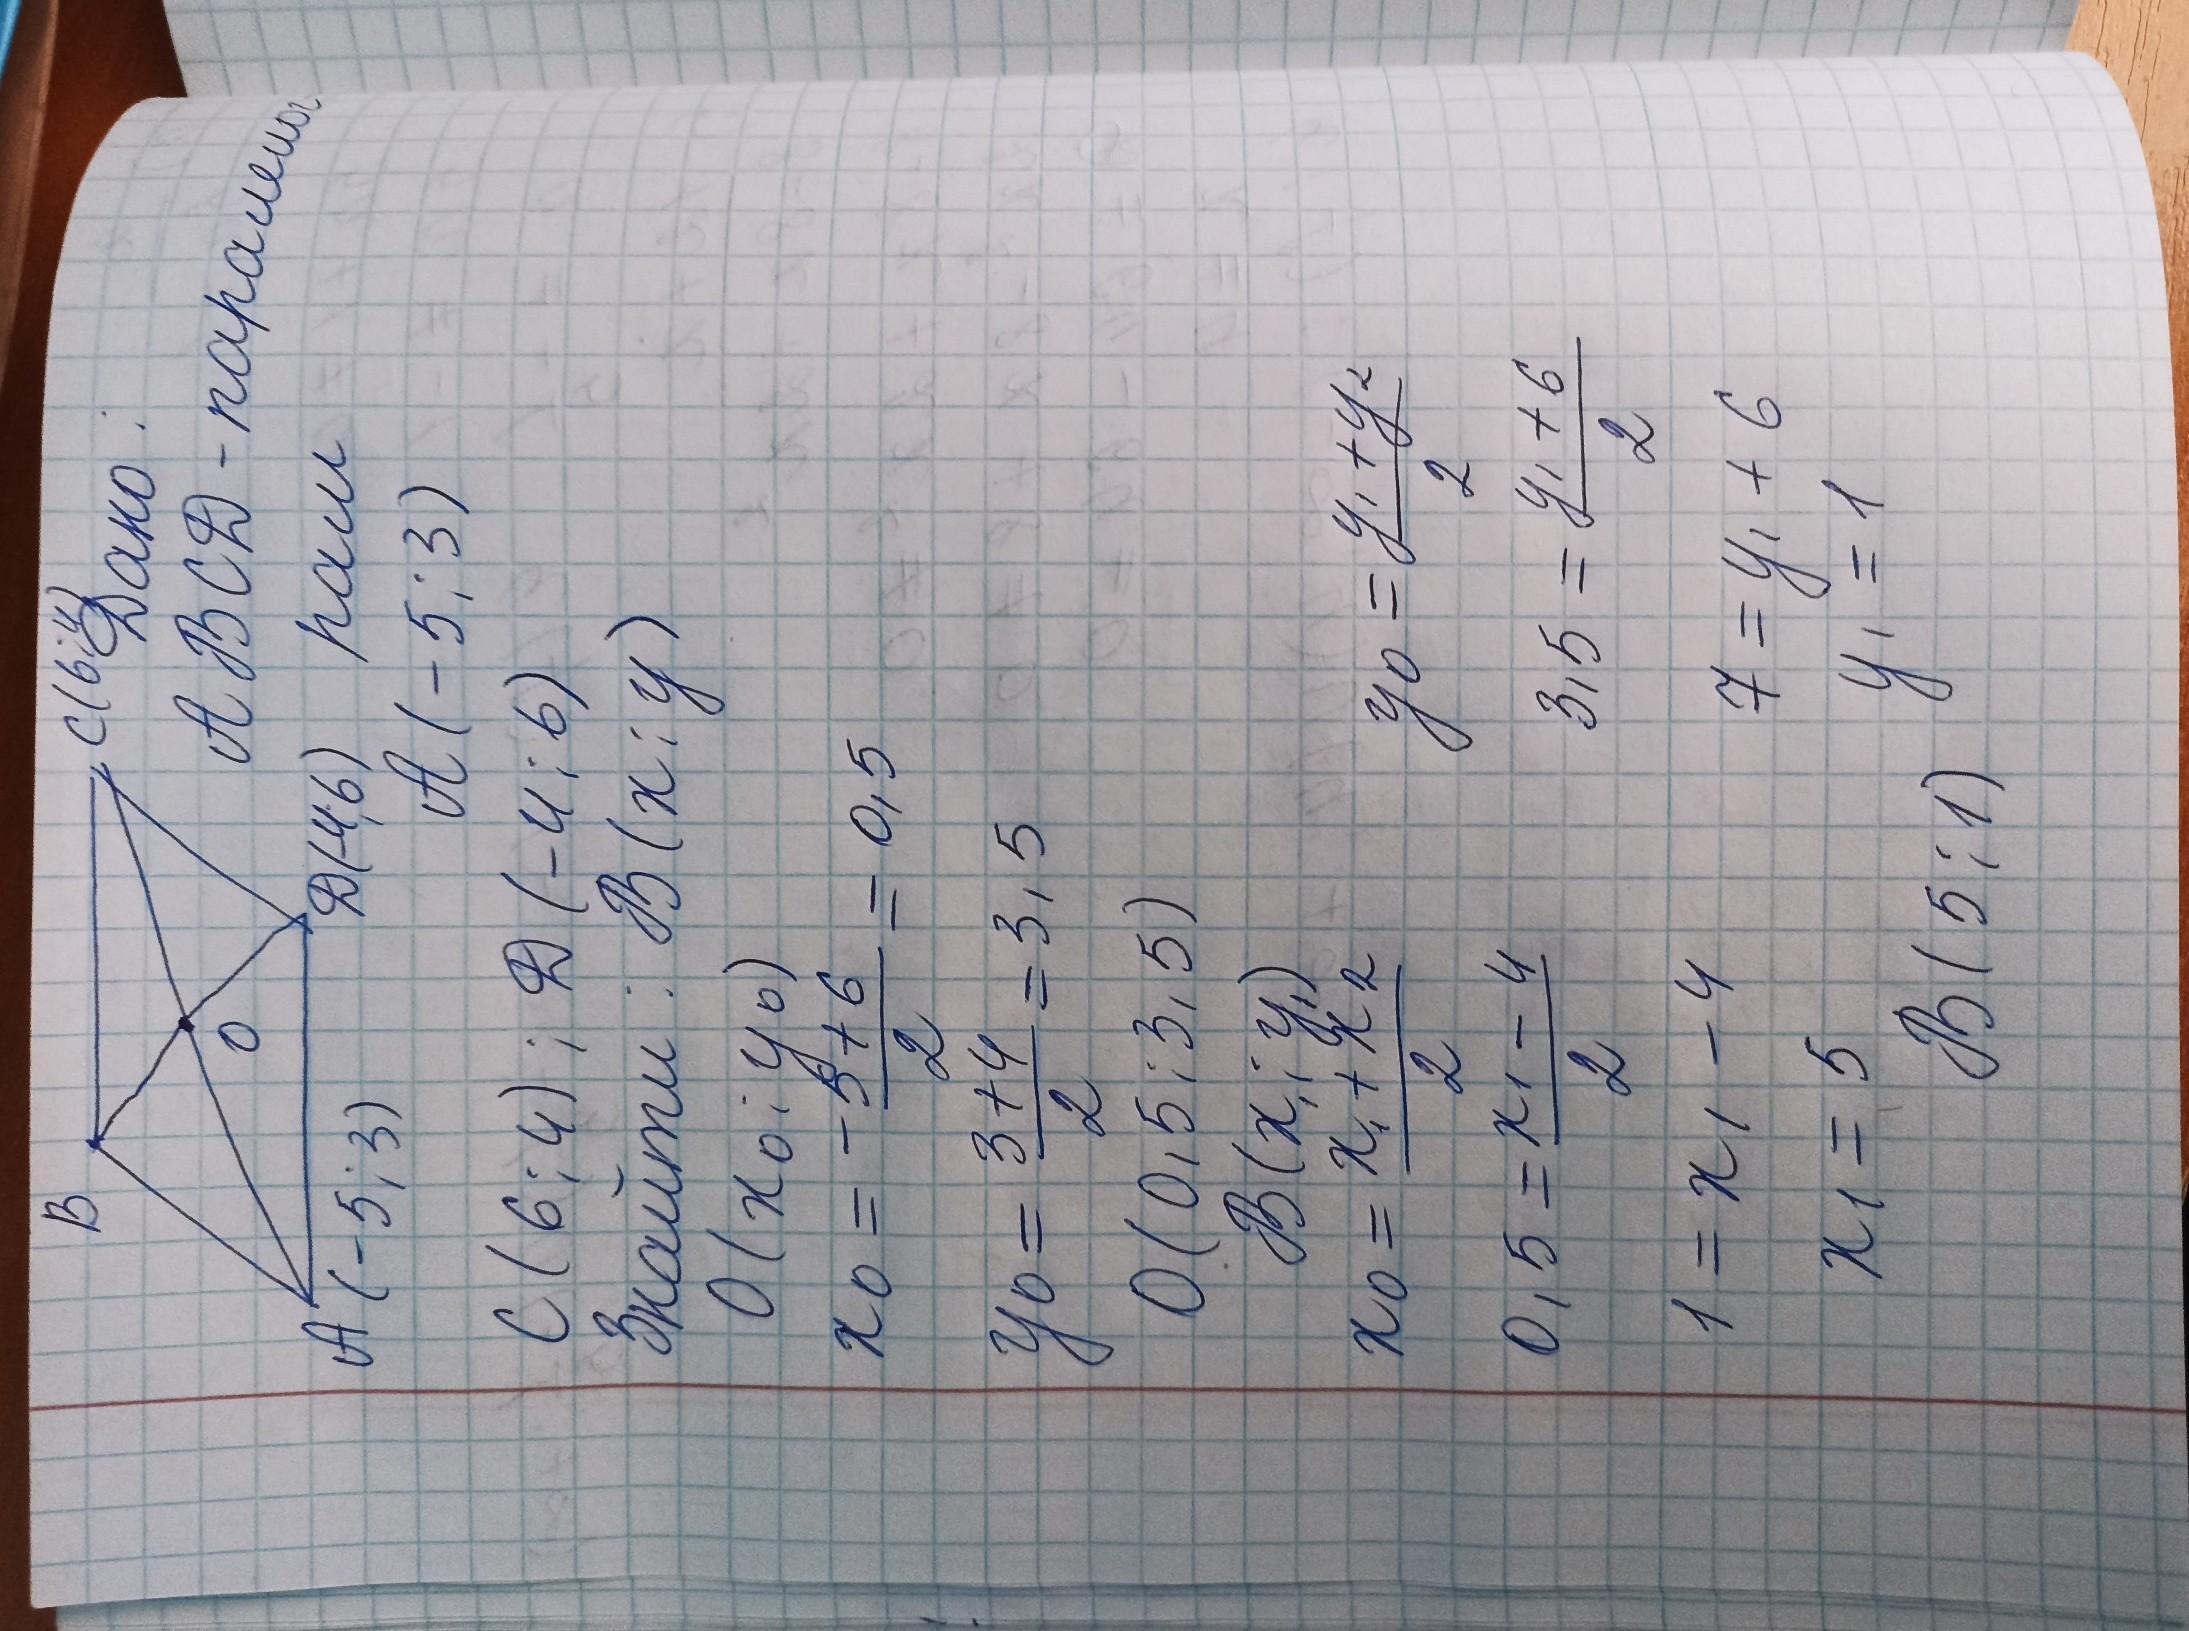 B
C(6;4)
O
A(-5;3)
D(-4;6)
Дано:
ABCD - паралелог.
A(-5;3)
C(6;4); D(-4;6)
Знайти: B(x;y)
O(x₀;y₀)
x₀ = -5+6/2 = 0,5
y₀ = 3+4/2 = 3,5
O(0,5;3,5)
B(x₁;y₁)
x₀ = x₁+x₂/2 y₀ = y₁+y₂/2
0,5 = x₁-4/2 3,5 = y₁+6/2
1 = x₁ - 4 7 = y₁ + 6
x₁ = 5 y₁ = 1
B(5;1)